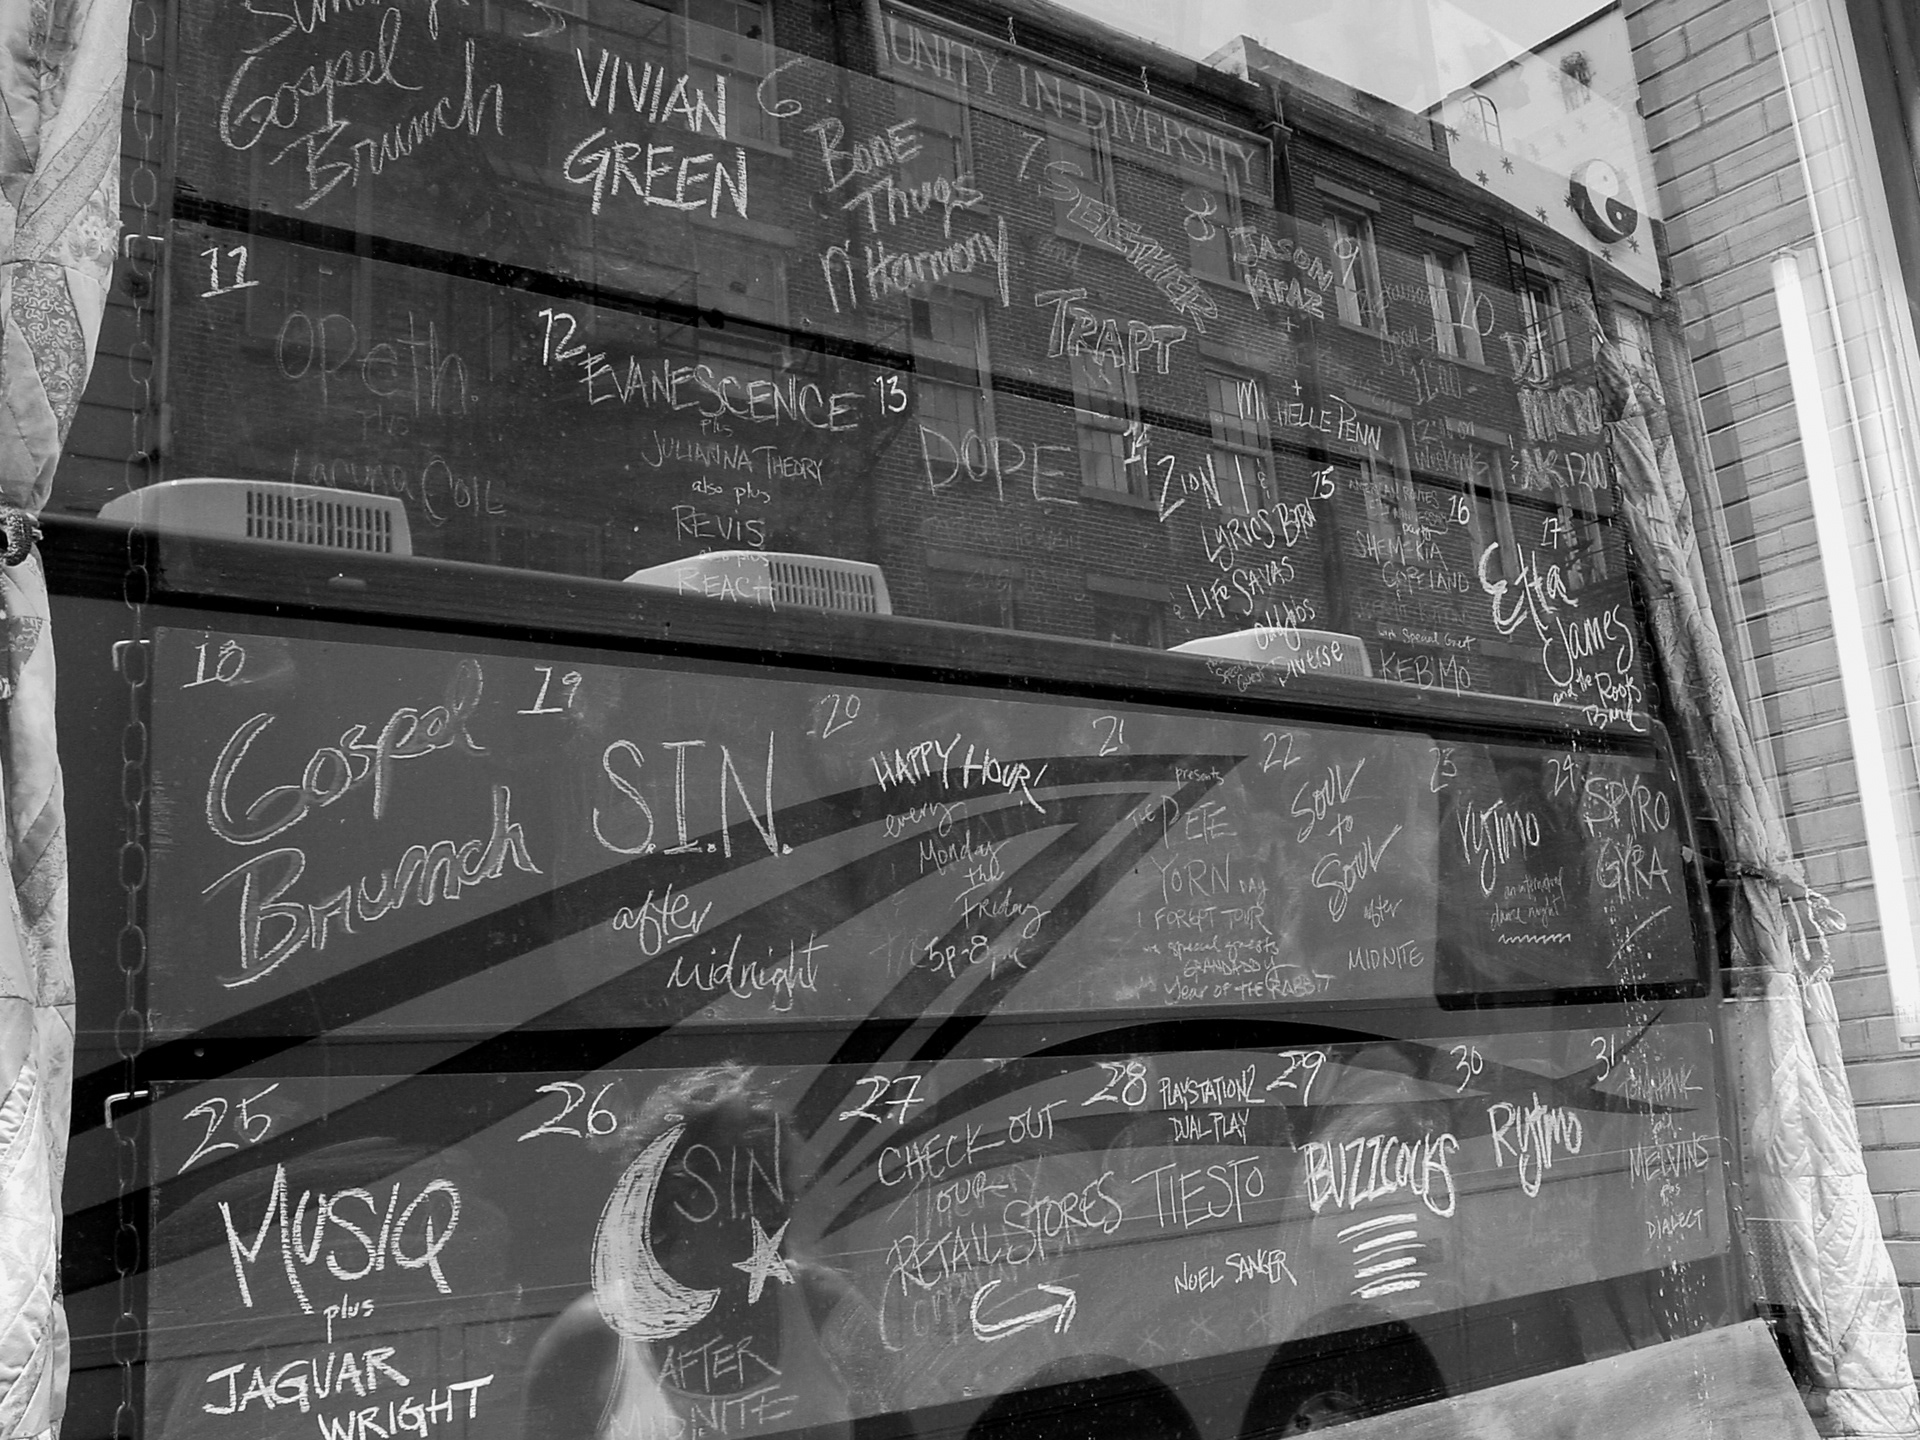 Gospel
Brunch
5
VIVIAN
GREEN
6
Bone
Thugs
N' Harmony
UNITY IN DIVERSITY
7
SEETHER
and
TRAPT
8
JASON
MRAZ
+
9
10
DJ
MICRO
&
AK1200
11
OPETH
plus
Lacuna COIL
12
EVANESCENCE
plus
JULIANNA THEORY
also plus
REVIS
also plus
REACH
13
DOPE
14
ZION I &
LYRICS BORN
& LIFE SAVAS
OHMEGA
Special
Guest Diverse
15
SHEMEKIA
COPELAND
with Special Guest
KEB'MO
16
17
Etta
James
and the Roots
Band
18
Gospel
Brunch
19
S.I.N.
after
midnight
20
HAPPY HOUR!
every
Monday
thru
Friday
5p-8pm
21
presents
THE PETE
YORN DAY
I FORGOT TOUR
w/ special guests
GRANDADDY
also plus Year OF THE RABBIT
22
SOUL
to
SOUL
after
MIDNITE
23
RYTMO
an international
dance night
24
SPYRO
GYRA
25
MUSIQ
plus
JAGUAR
WRIGHT
26
S.I.N
AFTER
MIDNITE
27
CHECK OUT
OUR
RETAIL STORES
28
PLAYSTATION2
DUAL PLAY
TIESTO
NOEL SANGER
29
BUZZCOCKS
30
Rytmo
31
TOMAHAWK
and
MELVINS
plus
DIALECT